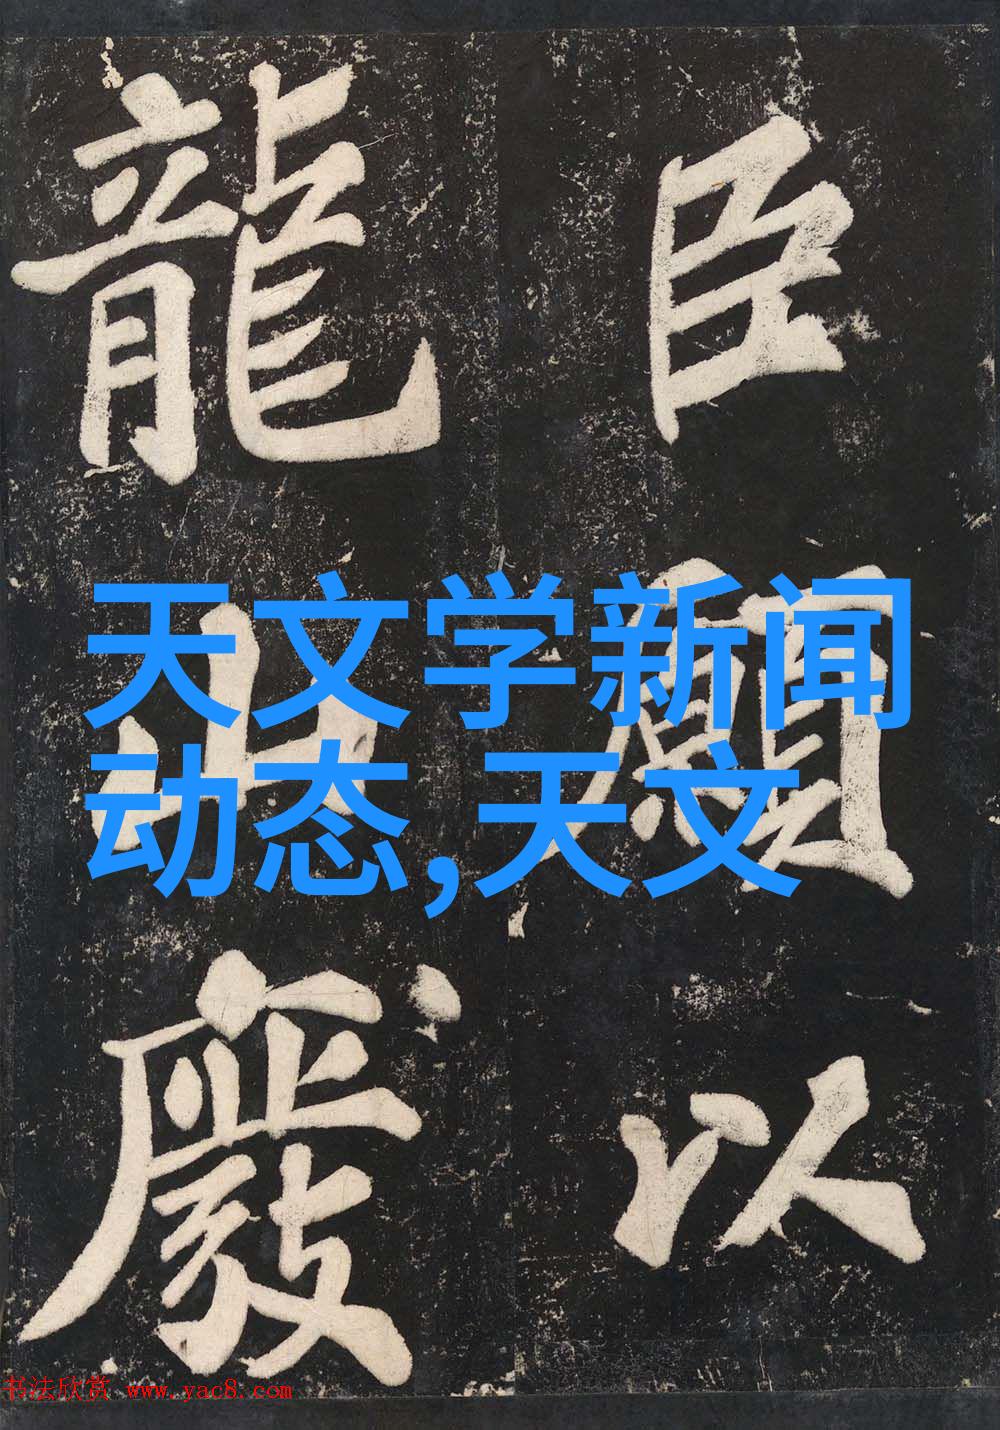 臣
以
龍
天文学新闻
动态,天文
书法欣赏 www.yac8.com